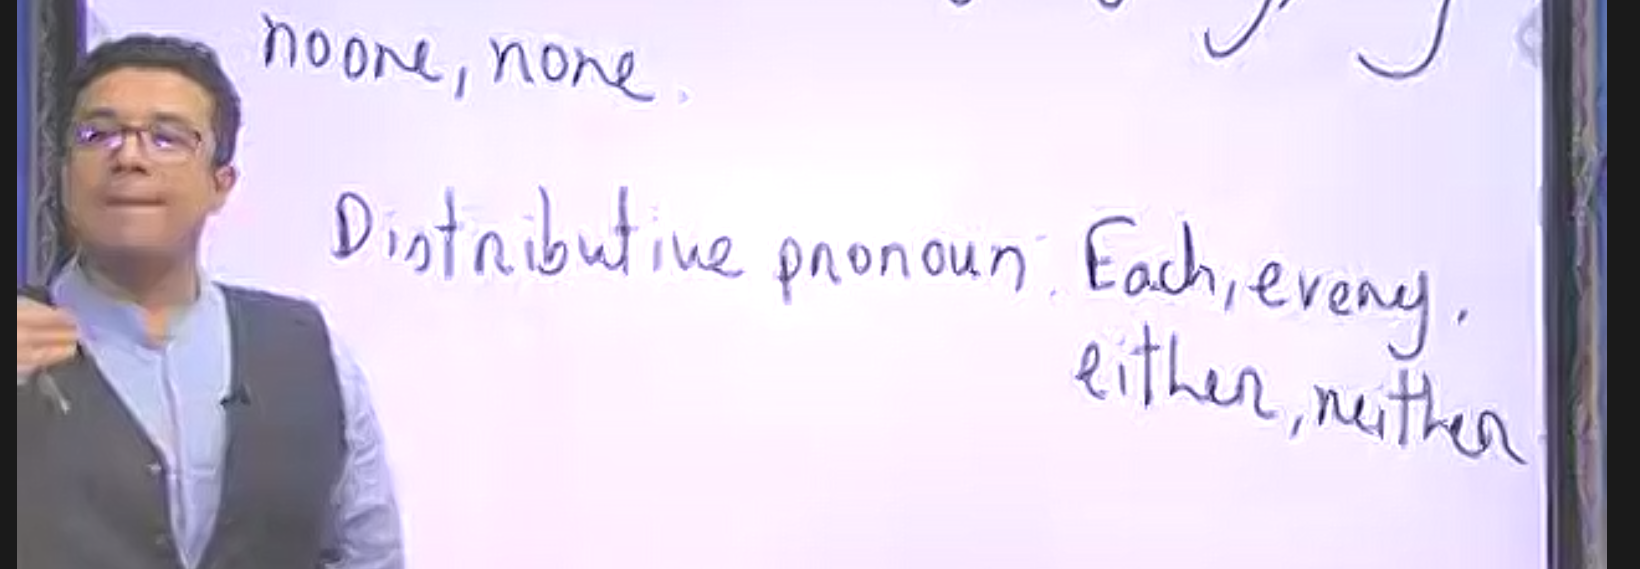 noone, none.
Distributive pronoun. Each, every.
either, neither